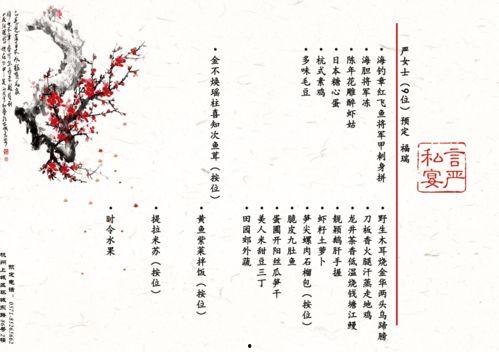 严女士（9位）预定 福瑞
言严私宴
海钓章红飞鱼将军甲刺身拼
海胆将军冻
陈年花雕醉虾姑
日本糖心蛋
杭式素鸡
多味毛豆
金不焕瑶柱喜知次鱼茸（按位）
野生木耳烧金华两头乌蹄膀
刀板香火腿汗蒸走地鸡
龙井茶香低温烧钱塘江鳗
靓颖鹅肝手握
虾籽土萝卜
笋尖螺肉石榴包（按位）
脆皮九肚鱼
蛋圃开阳丝瓜笋干
美人米甜豆三丁
田园郊外蔬
黄鱼紫菜拌饭（按位）
提拉米苏（按位）
时令水果